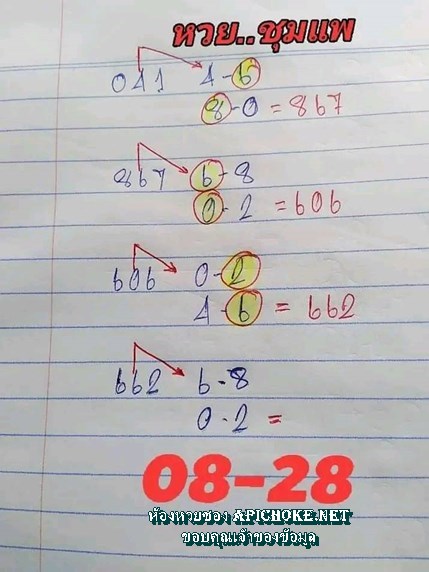 หวย..ชุมแพ
041 4-6
8-0 = 867
867 6-8
0-2 = 606
606 0-2
4-6 = 662
662 6-8
0-2 =
08-28
ห้องหวยซอง APICHOKE.NET
ขอบคุณเจ้าของข้อมูล